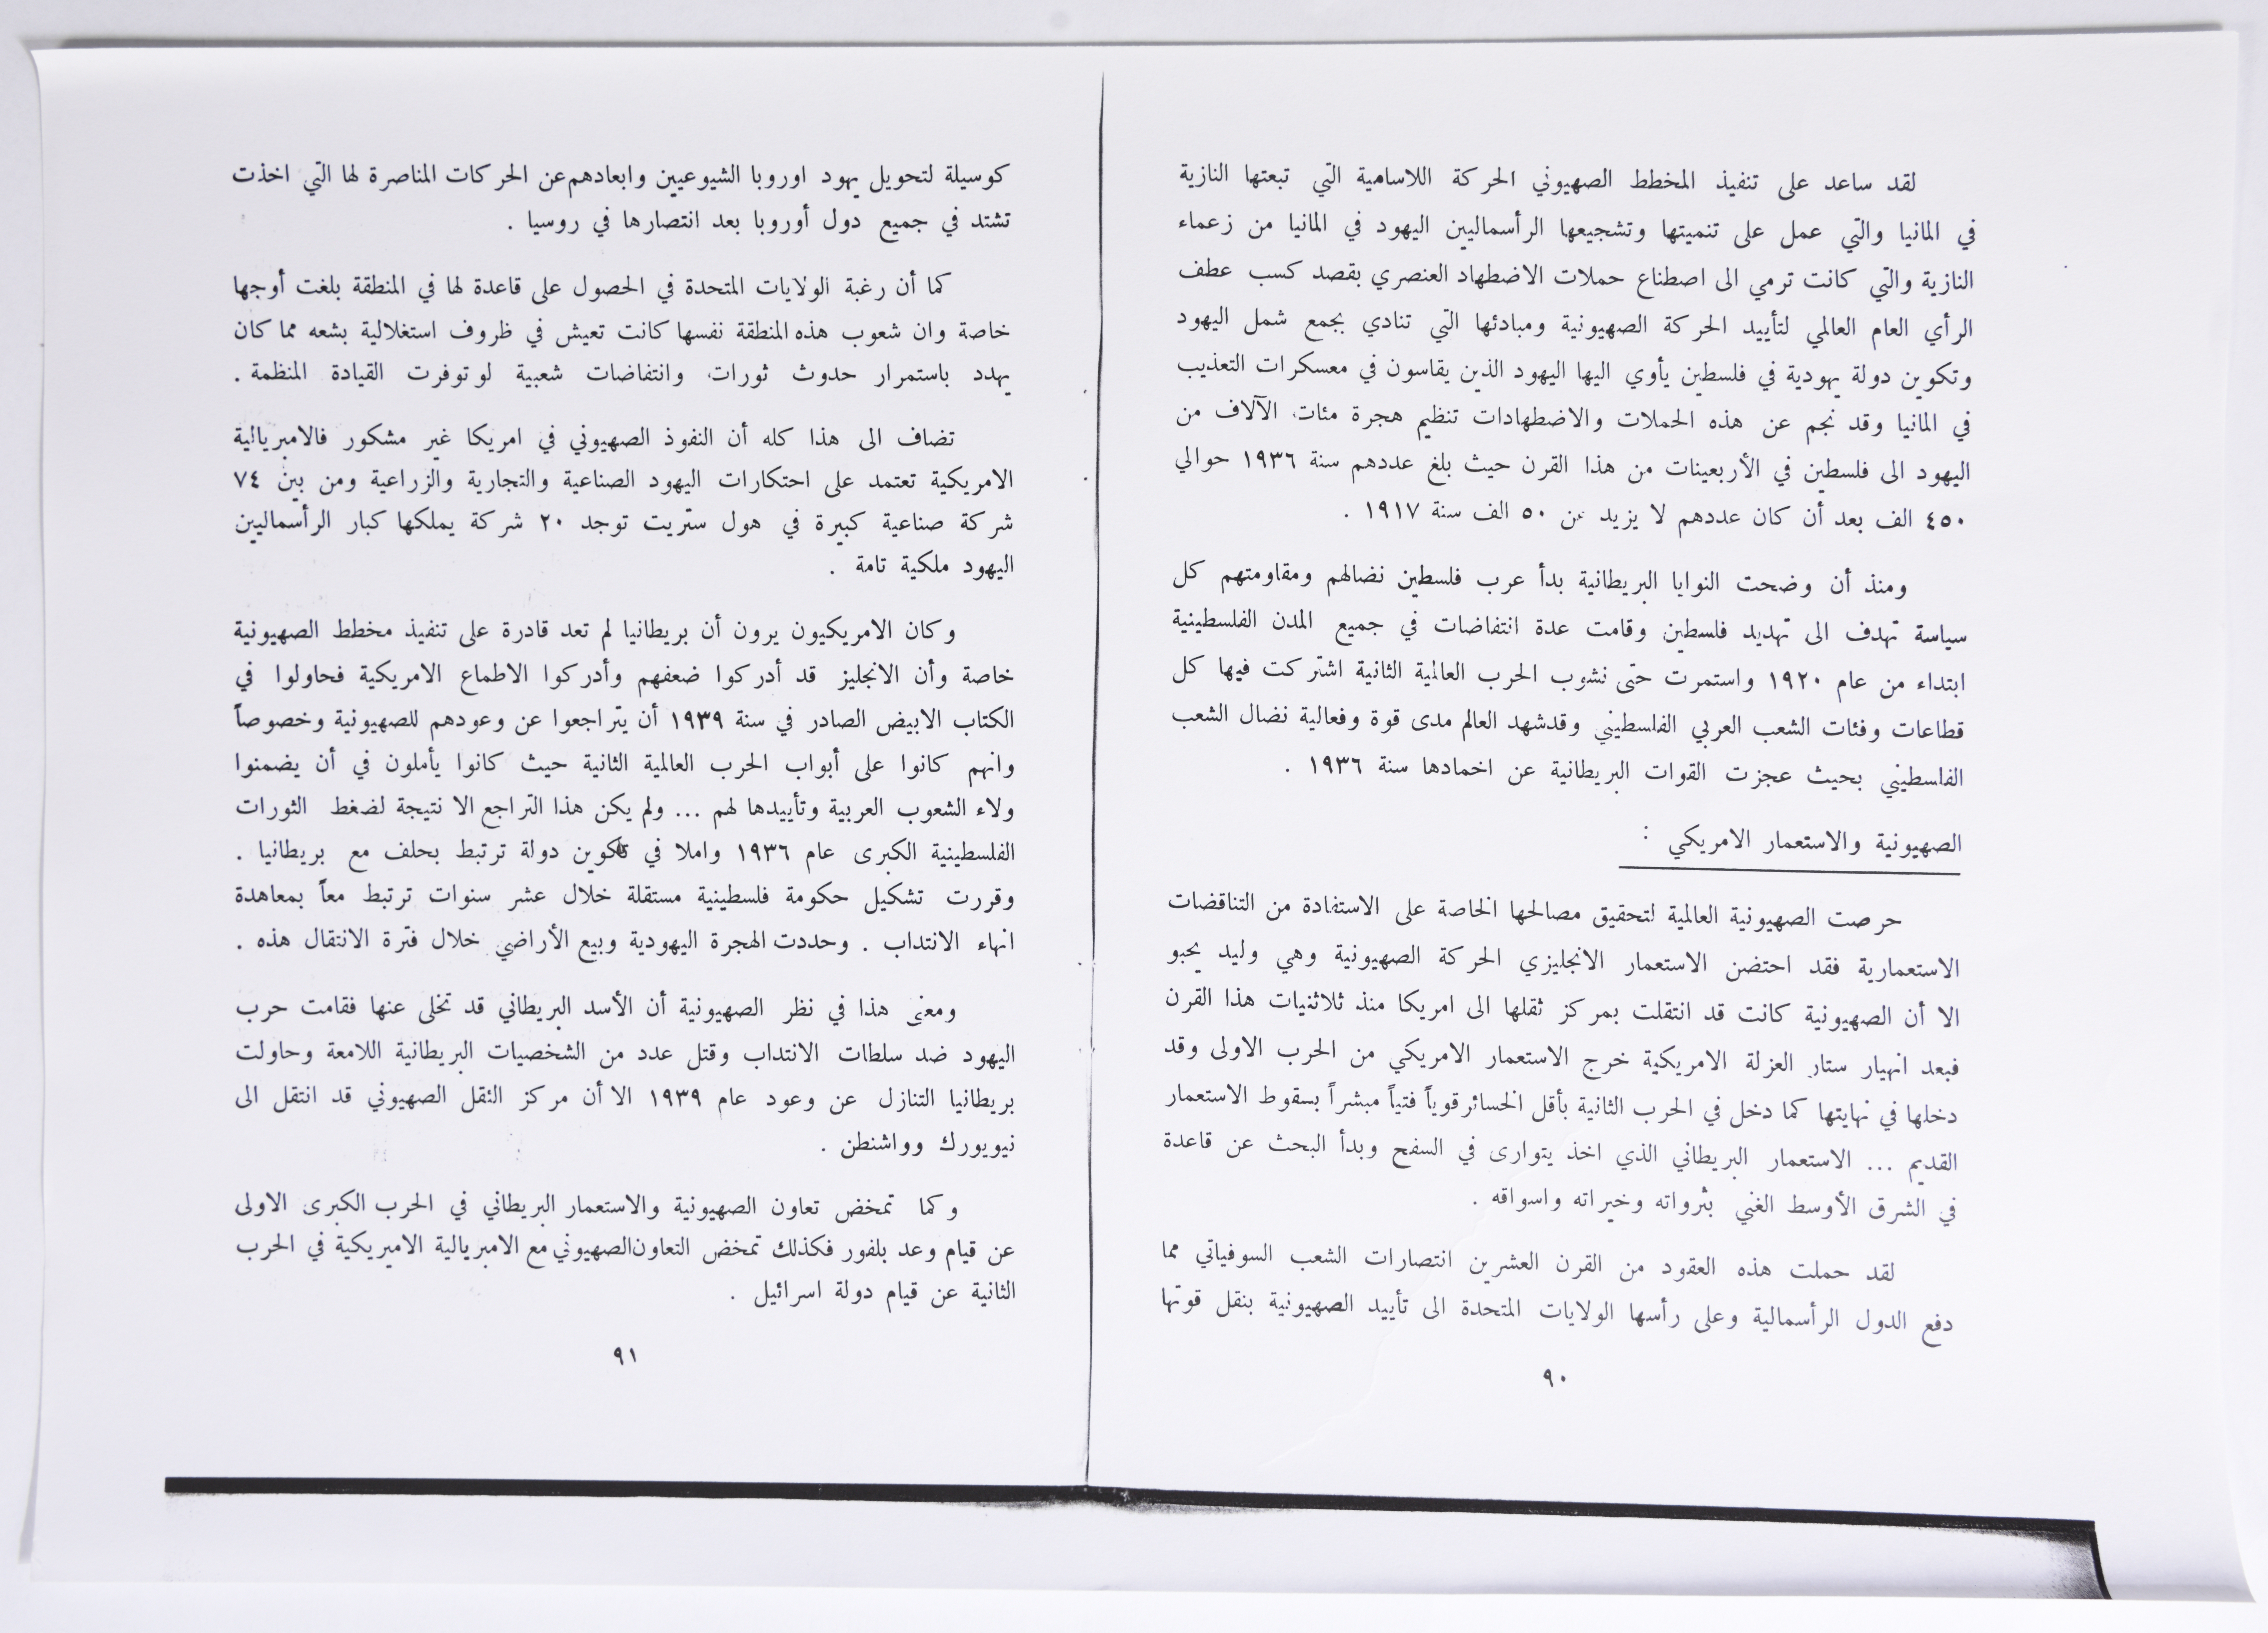 لقد ساعد على تنفيذ المخطط الصهيوني الحركة اللاسامية التي تبعتها النازية
في المانيا والتي عمل على تنميتها وتشجيعها الرأسماليين اليهود في المانيا من زعماء
النازية والتي كانت ترمي الى اصطناع حملات الاضطهاد العنصري بقصد كسب عطف
الرأي العام العالمي لتأييد الحركة الصهيونية ومبادئها التي تنادي بجمع شمل اليهود
وتكوين دولة يهودية في فلسطين يأوي اليها اليهود الذين يقاسون في معسكرات التعذيب
في المانيا وقد نجم عن هذه الحملات والاضطهادات تنظيم هجرة مئات الآلاف من
اليهود الى فلسطين في الأربعينات من هذا القرن حيث بلغ عددهم سنة ١٩٣٦ حوالي
٤٥٠ الف بعد أن كان عددهم لا يزيد عن ٥٠ الف سنة ١٩١٧ .
ومنذ أن وضحت النوايا البريطانية بدأ عرب فلسطين نضالهم ومقاومتهم كل
سياسة تهدف الى تهديد فلسطين وقامت عدة انتفاضات في جميع المدن الفلسطينية
ابتداء من عام ١٩٢٠ واستمرت حتى نشوب الحرب العالمية الثانية اشتركت فيها كل
قطاعات وفئات الشعب العربي الفلسطيني وقدشهد العالم مدى قوة وفعالية نضال الشعب
الفلسطيني بحيث عجزت القوات البريطانية عن اخمادها سنة ١٩٣٦ .
الصهيونية والاستعمار الامريكي :
حرصت الصهيونية العالمية لتحقيق مصالحها الخاصة على الاستفادة من التناقضات
الاستعمارية فقد احتضن الاستعمار الانجليزي الحركة الصهيونية وهي وليد يحبو
الا أن الصهيونية كانت قد انتقلت بمركز ثقلها الى امريكا منذ ثلاثنيات هذا القرن
فبعد انهيار ستار العزلة الامريكية خرج الاستعمار الامريكي من الحرب الاولى وقد
دخلها في نهايتها كما دخل في الحرب الثانية بأقل الخسائر قوياً فتياً مبشراً بسقوط الاستعمار
القديم ... الاستعمار البريطاني الذي اخذ يتوارى في السفح وبدأ البحث عن قاعدة
في الشرق الأوسط الغني بثرواته وخيراته واسواقه .
لقد حملت هذه العقود من القرن العشرين انتصارات الشعب السوفياتي مما
دفع الدول الرأسمالية وعلى رأسها الولايات المتحدة الى تأييد الصهيونية بنقل قوتها
٩٠
كوسيلة لتحويل يهود اوروبا الشيوعيين وابعادهم عن الحركات المناصرة لها التي اخذت
تشتد في جميع دول أوروبا بعد انتصارها في روسيا .
كما أن رغبة الولايات المتحدة في الحصول على قاعدة لها في المنطقة بلغت أوجها
خاصة وان شعوب هذه المنطقة نفسها كانت تعيش في ظروف استغلالية بشعه مما كان
يهدد باستمرار حدوث ثورات وانتفاضات شعبية لو توفرت القيادة المنظمة .
تضاف الى هذا كله أن النفوذ الصهيوني في امريكا غير مشكور فالامبريالية
الامريكية تعتمد على احتكارات اليهود الصناعية والتجارية والزراعية ومن بين ٧٤
شركة صناعية كبيرة في هول ستريت توجد ٢٠ شركة يملكها كبار الرأسماليين
اليهود ملكية تامة .
وكان الامريكيون يرون أن بريطانيا لم تعد قادرة على تنفيذ مخطط الصهيونية
خاصة وأن الانجليز قد أدركوا ضعفهم وأدركوا الاطماع الامريكية فحاولوا في
الكتاب الابيض الصادر في سنة ١٩٣٩ أن يتراجعوا عن وعودهم للصهيونية وخصوصاً
وانهم كانوا على أبواب الحرب العالمية الثانية حيث كانوا يأملون في أن يضمنوا
ولاء الشعوب العربية وتأييدها لهم ... ولم يكن هذا التراجع الا نتيجة لضغط الثورات
الفلسطينية الكبرى عام ١٩٣٦ واملا في تكوين دولة ترتبط بحلف مع بريطانيا .
وقررت تشكيل حكومة فلسطينية مستقلة خلال عشر سنوات ترتبط معاً بمعاهدة
انهاء الانتداب . وحددت الهجرة اليهودية وبيع الأراضي خلال فترة الانتقال هذه .
ومعنى هذا في نظر الصهيونية أن الأسد البريطاني قد تخلى عنها فقامت حرب
اليهود ضد سلطات الانتداب وقتل عدد من الشخصيات البريطانية اللامعة وحاولت
بريطانيا التنازل عن وعود عام ١٩٣٩ الا أن مركز الثقل الصهيوني قد انتقل الى
نيويورك وواشنطن .
وكما تمخض تعاون الصهيونية والاستعمار البريطاني في الحرب الكبرى الاولى
عن قيام وعد بلفور فكذلك تمخض التعاون الصهيوني مع الامبريالية الاميريكية في الحرب
الثانية عن قيام دولة اسرائيل .
٩١